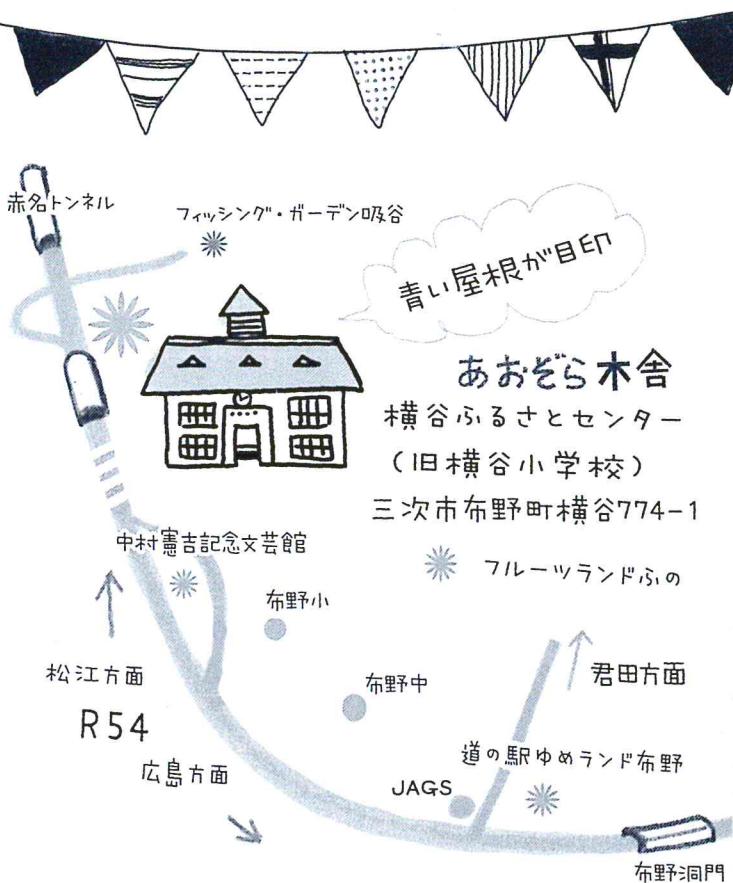 赤名トンネル
フィッシング・ガーデン吸谷
青い屋根が目印
あおぞら木舎
横谷ふるさとセンター
(旧横谷小学校)
三次市布野町横谷774-1
中村憲吉記念文芸館
フルーツランドふの
布野小
松江方面
布野中
君田方面
R54
広島方面
道の駅ゆめランド布野
JAGS
布野洞門